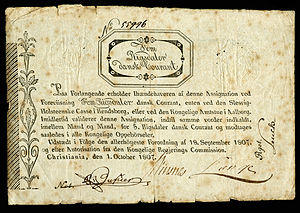 No 55996
Fem
Rigsdaler
dansk Courant
Paa Forlangende erholder Ihændehaveren af denne Assignation ved
Forevisning Fem Rigsdaler dansk Courant, enten ved den Sleswig-
Holsteenske Casse i Rendsborg, eller ved den Kongelige Amtstue i Aalborg.
Imidlertid validerer denne Assignation, indtil samme vorder indkaldt,
imellem Mand og Mand, for 5 Rigsdaler dansk Courant og modtages
saaledes i alle Kongelige Oppebørseler.
Udstædt i Følge den allerhøieste Forordning af 18 September 1807,
og efter Autorisation fra den Kongelige Regjerings Commission.
Christiania, den 1 October 1807.